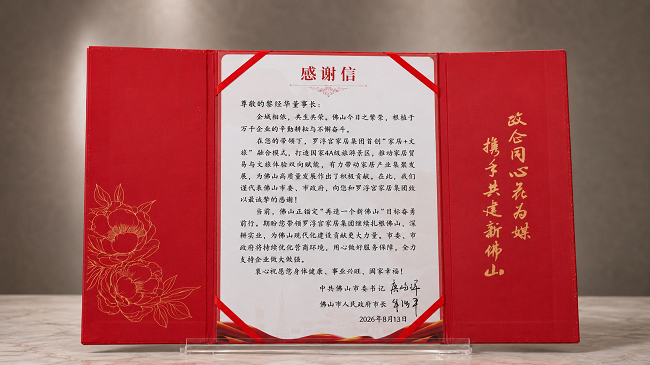 感谢信
尊敬的黎经华董事长：
企城相依，共生共荣。佛山今日之繁荣，根植于
万千企业的辛勤耕耘与不懈奋斗。
在您的带领下，罗浮宫家居集团首创“家居+文
旅”融合模式，打造国家4A级旅游景区，推动家居贸
易与文旅体验双向赋能，有力带动家居产业集聚发
展，为佛山高质量发展作出了积极贡献。在此，我们
谨代表佛山市委、市政府，向您和罗浮宫家居集团致
以最诚挚的感谢！
当前，佛山正锚定“再造一个新佛山”目标奋勇
前行。期盼您带领罗浮宫家居集团继续扎根佛山、深
耕实业，为佛山现代化建设贡献更大力量。市委、市
政府将持续优化营商环境，用心做好服务保障，全力
支持企业做大做强。
衷心祝愿您身体健康、事业兴旺、阖家幸福！
中共佛山市委书记
佛山市人民政府市长
2026年8月13日
政企同心花为媒
携手共建新佛山